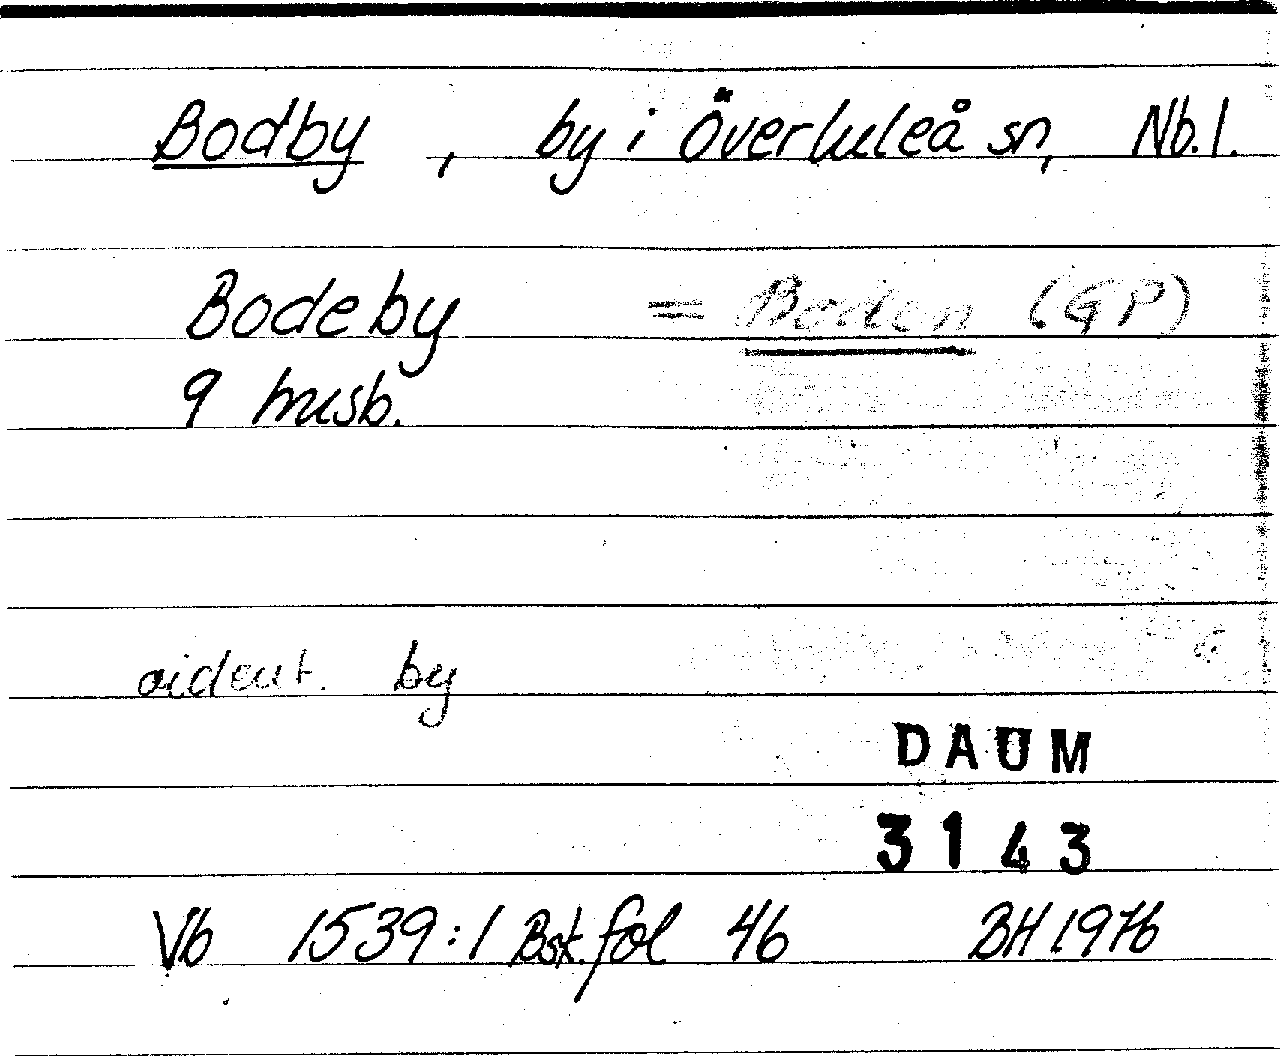 Bodby, by i Överluleå sn, Nb. l.
Bodeby = Boden (GP)
9 husb.
oident. by
DAUM
3143
Vb 1539:1 Bsk. fol 46 BH 1976